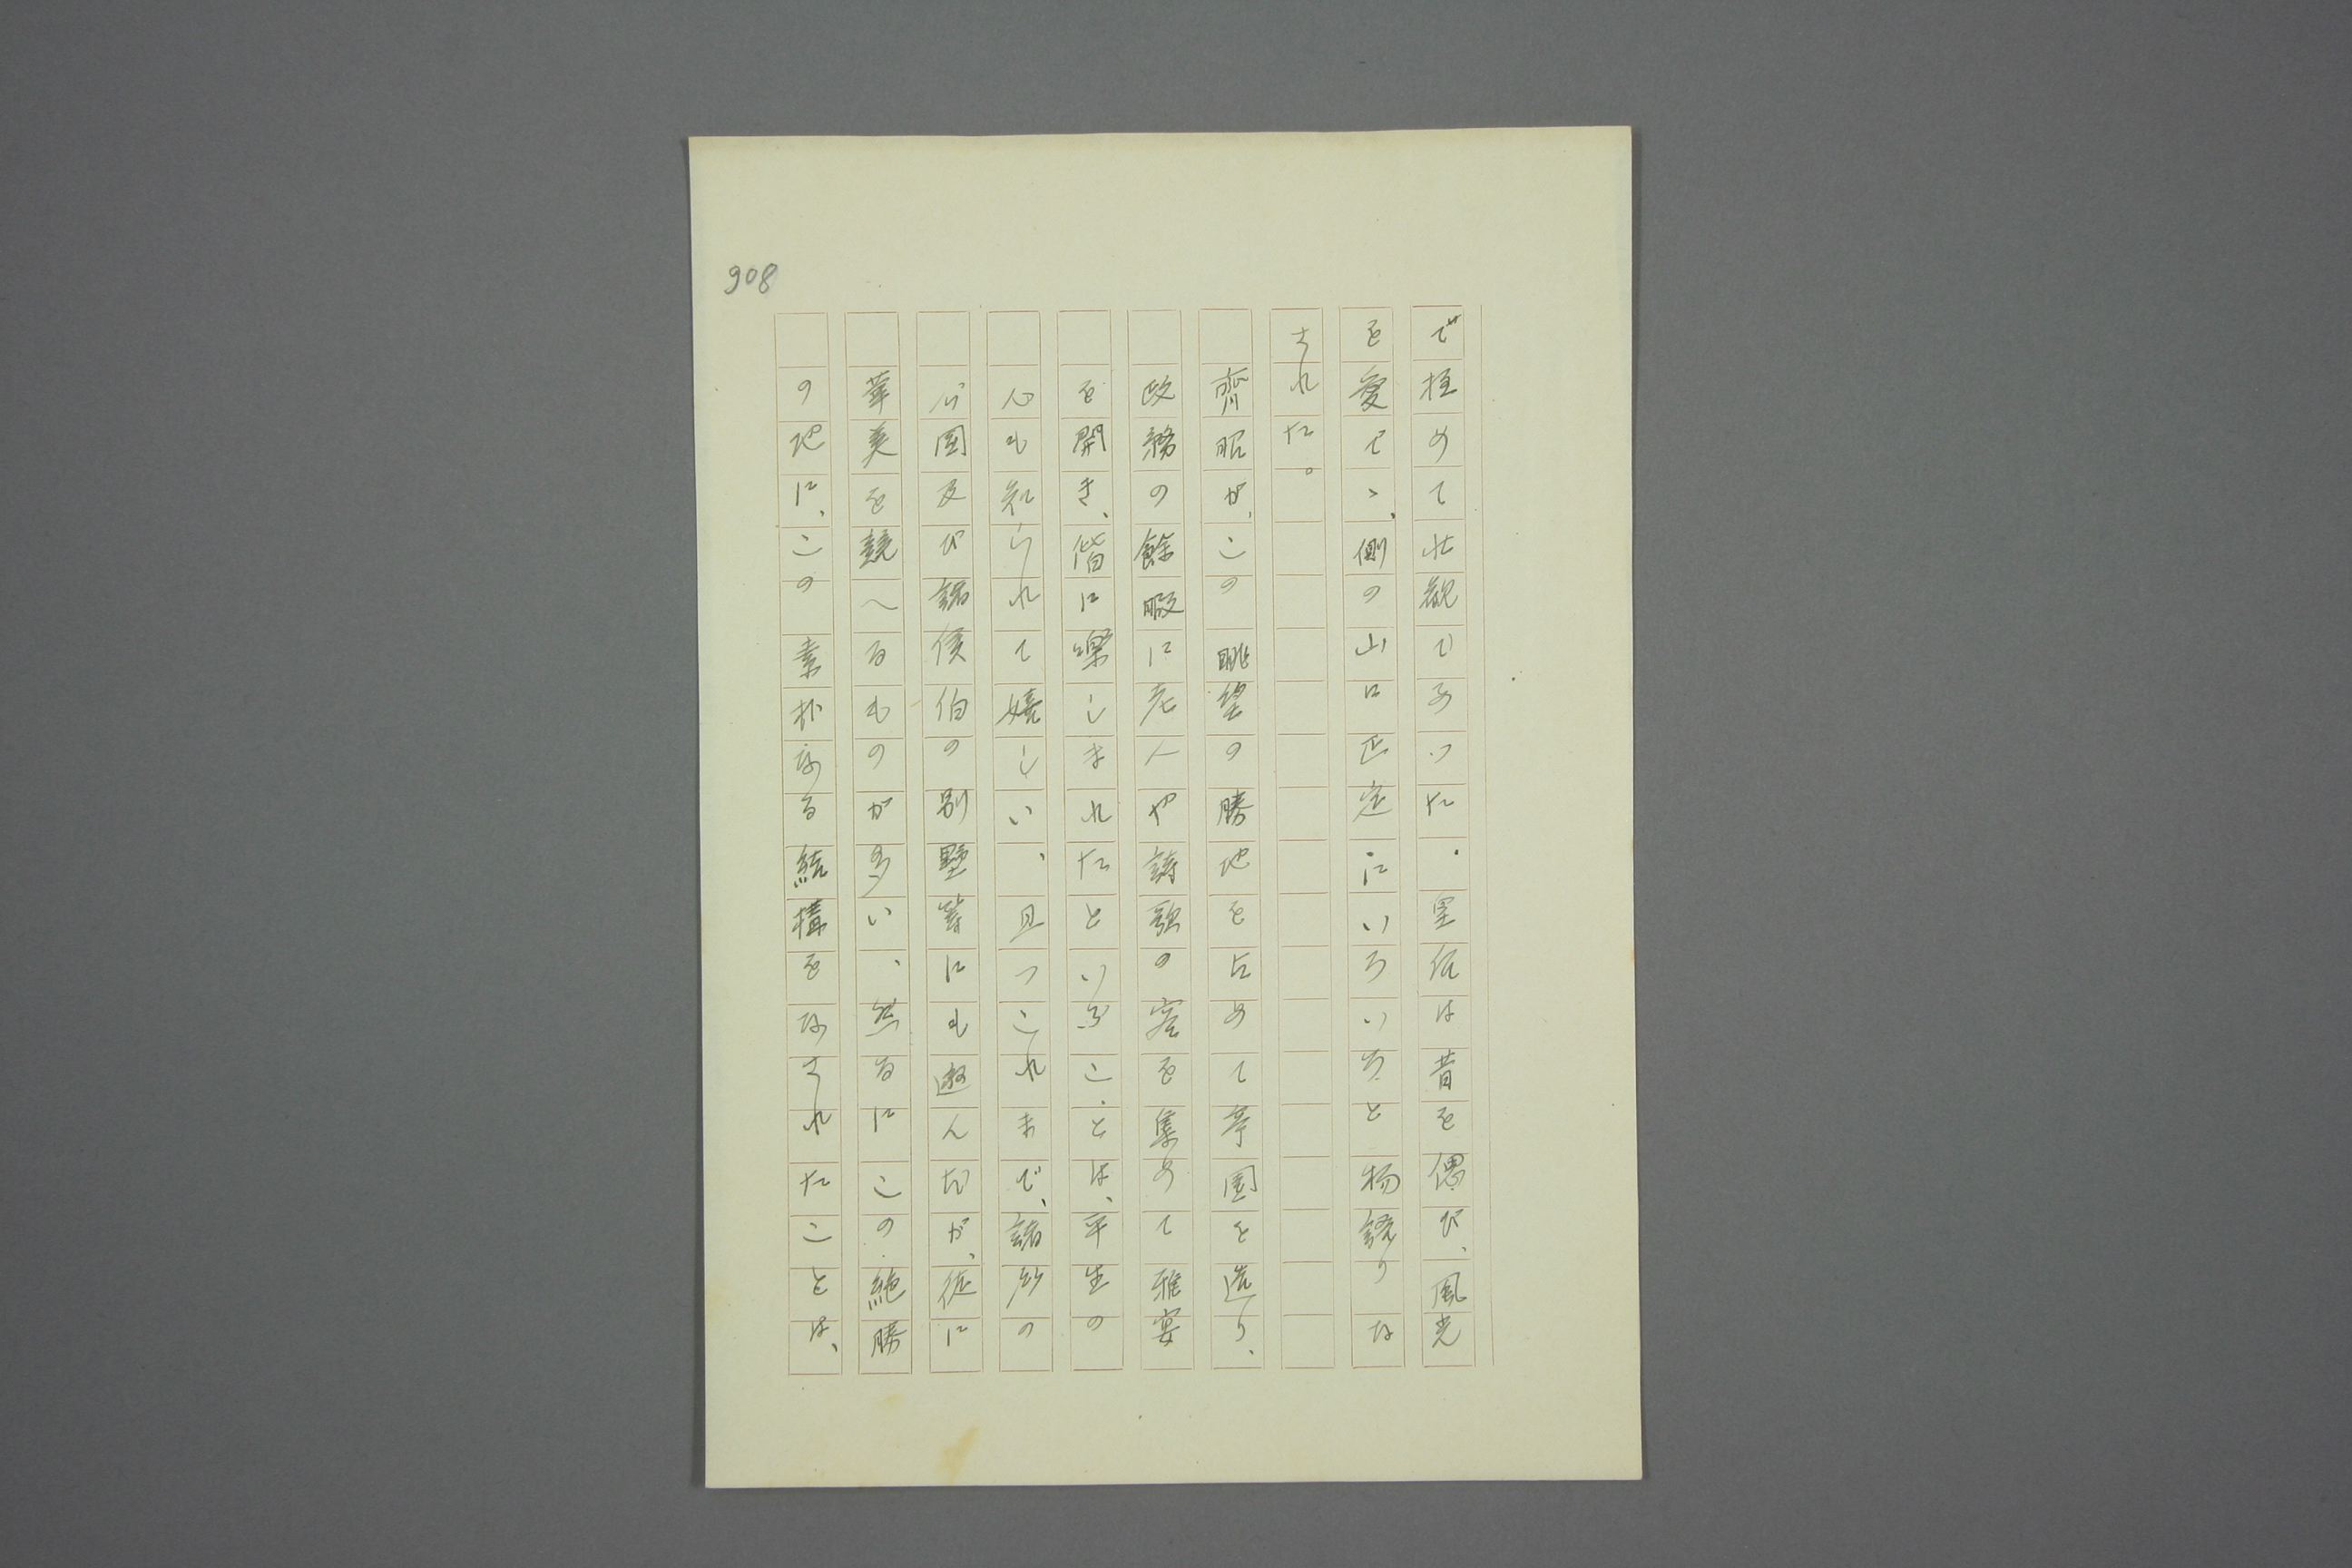 908
で極めて壮観であつた。里依は昔を偲び、風光
を愛でゝ、側の山口正定にいろいろと物語りな
された。
齊昭が、この眺望の勝地を占めて亭園を造り、
政務の餘暇に老人や詩歌の客を集めて雅宴
を開き、偕に樂しまれたといふことは、平生の
心も知られて嬉しい、且つこれまで、諸所の
公園及び諸侯伯の別墅等にも遊んだが、徒に
華美を競へるものが多い、然るにこの絶勝
の地に、この素朴なる結構をなされたことは、